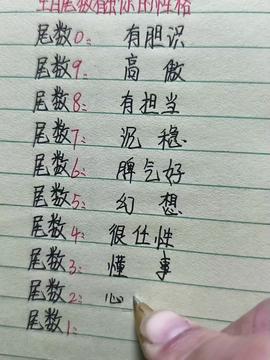 生日尾数看出你的性格
尾数0: 有胆识
尾数9: 高傲
尾数8: 有担当
尾数7: 沉稳
尾数6: 脾气好
尾数5: 幻想
尾数4: 很任性
尾数3: 懂事
尾数2: 心
尾数1: